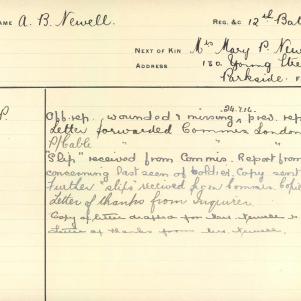 NAME A. B. Newell. REG. &c 12th Bat
NEXT OF KIN Mrs Mary P. New
ADDRESS 130 Young Stree
Parkside
24.7.16.
Off. rep. wounded & missing, prev. rep
Letter forwarded Commis London
P/Cable " " "
"Slip" received from Commis. Report from
concerning last seen of soldier. Copy sent
Further "slips" received from Commis. Copie
Letter of thanks from Inquirer.
Copy of letter drafted for Mrs Newell
Letter of thanks from Mrs Newell.